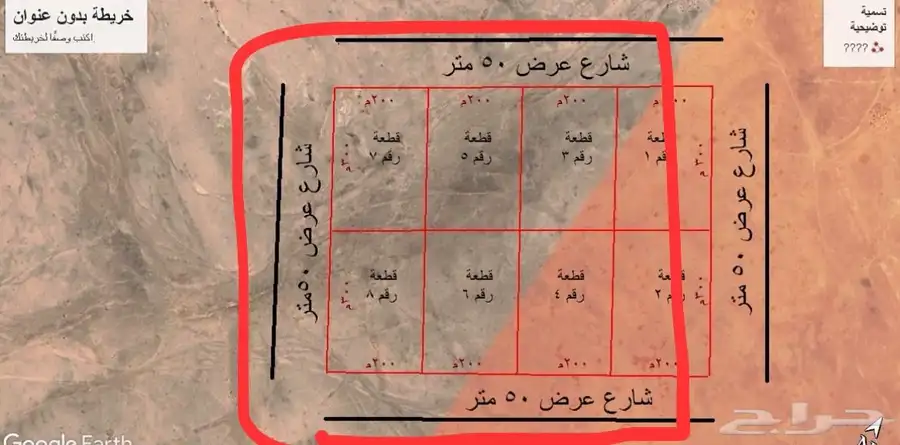 خريطة بدون عنوان
اكتب وصفًا لخريطتك.
تسمية
توضيحية
????
شارع عرض ٥٠ متر
٢٠٠م
٢٠٠م
٢٠٠م
٢٠٠م
قطعة
رقم ١
قطعة
رقم ٣
قطعة
رقم ٥
قطعة
رقم ٧
٣٠٠م
٣٠٠م
شارع عرض ٥٠ متر
شارع عرض ٥٠ متر
قطعة
رقم ٢
قطعة
رقم ٤
قطعة
رقم ٦
قطعة
رقم ٨
٣٠٠م
٣٠٠م
٢٠٠م
٢٠٠م
٢٠٠م
٢٠٠م
شارع عرض ٥٠ متر
Google Earth
حراج